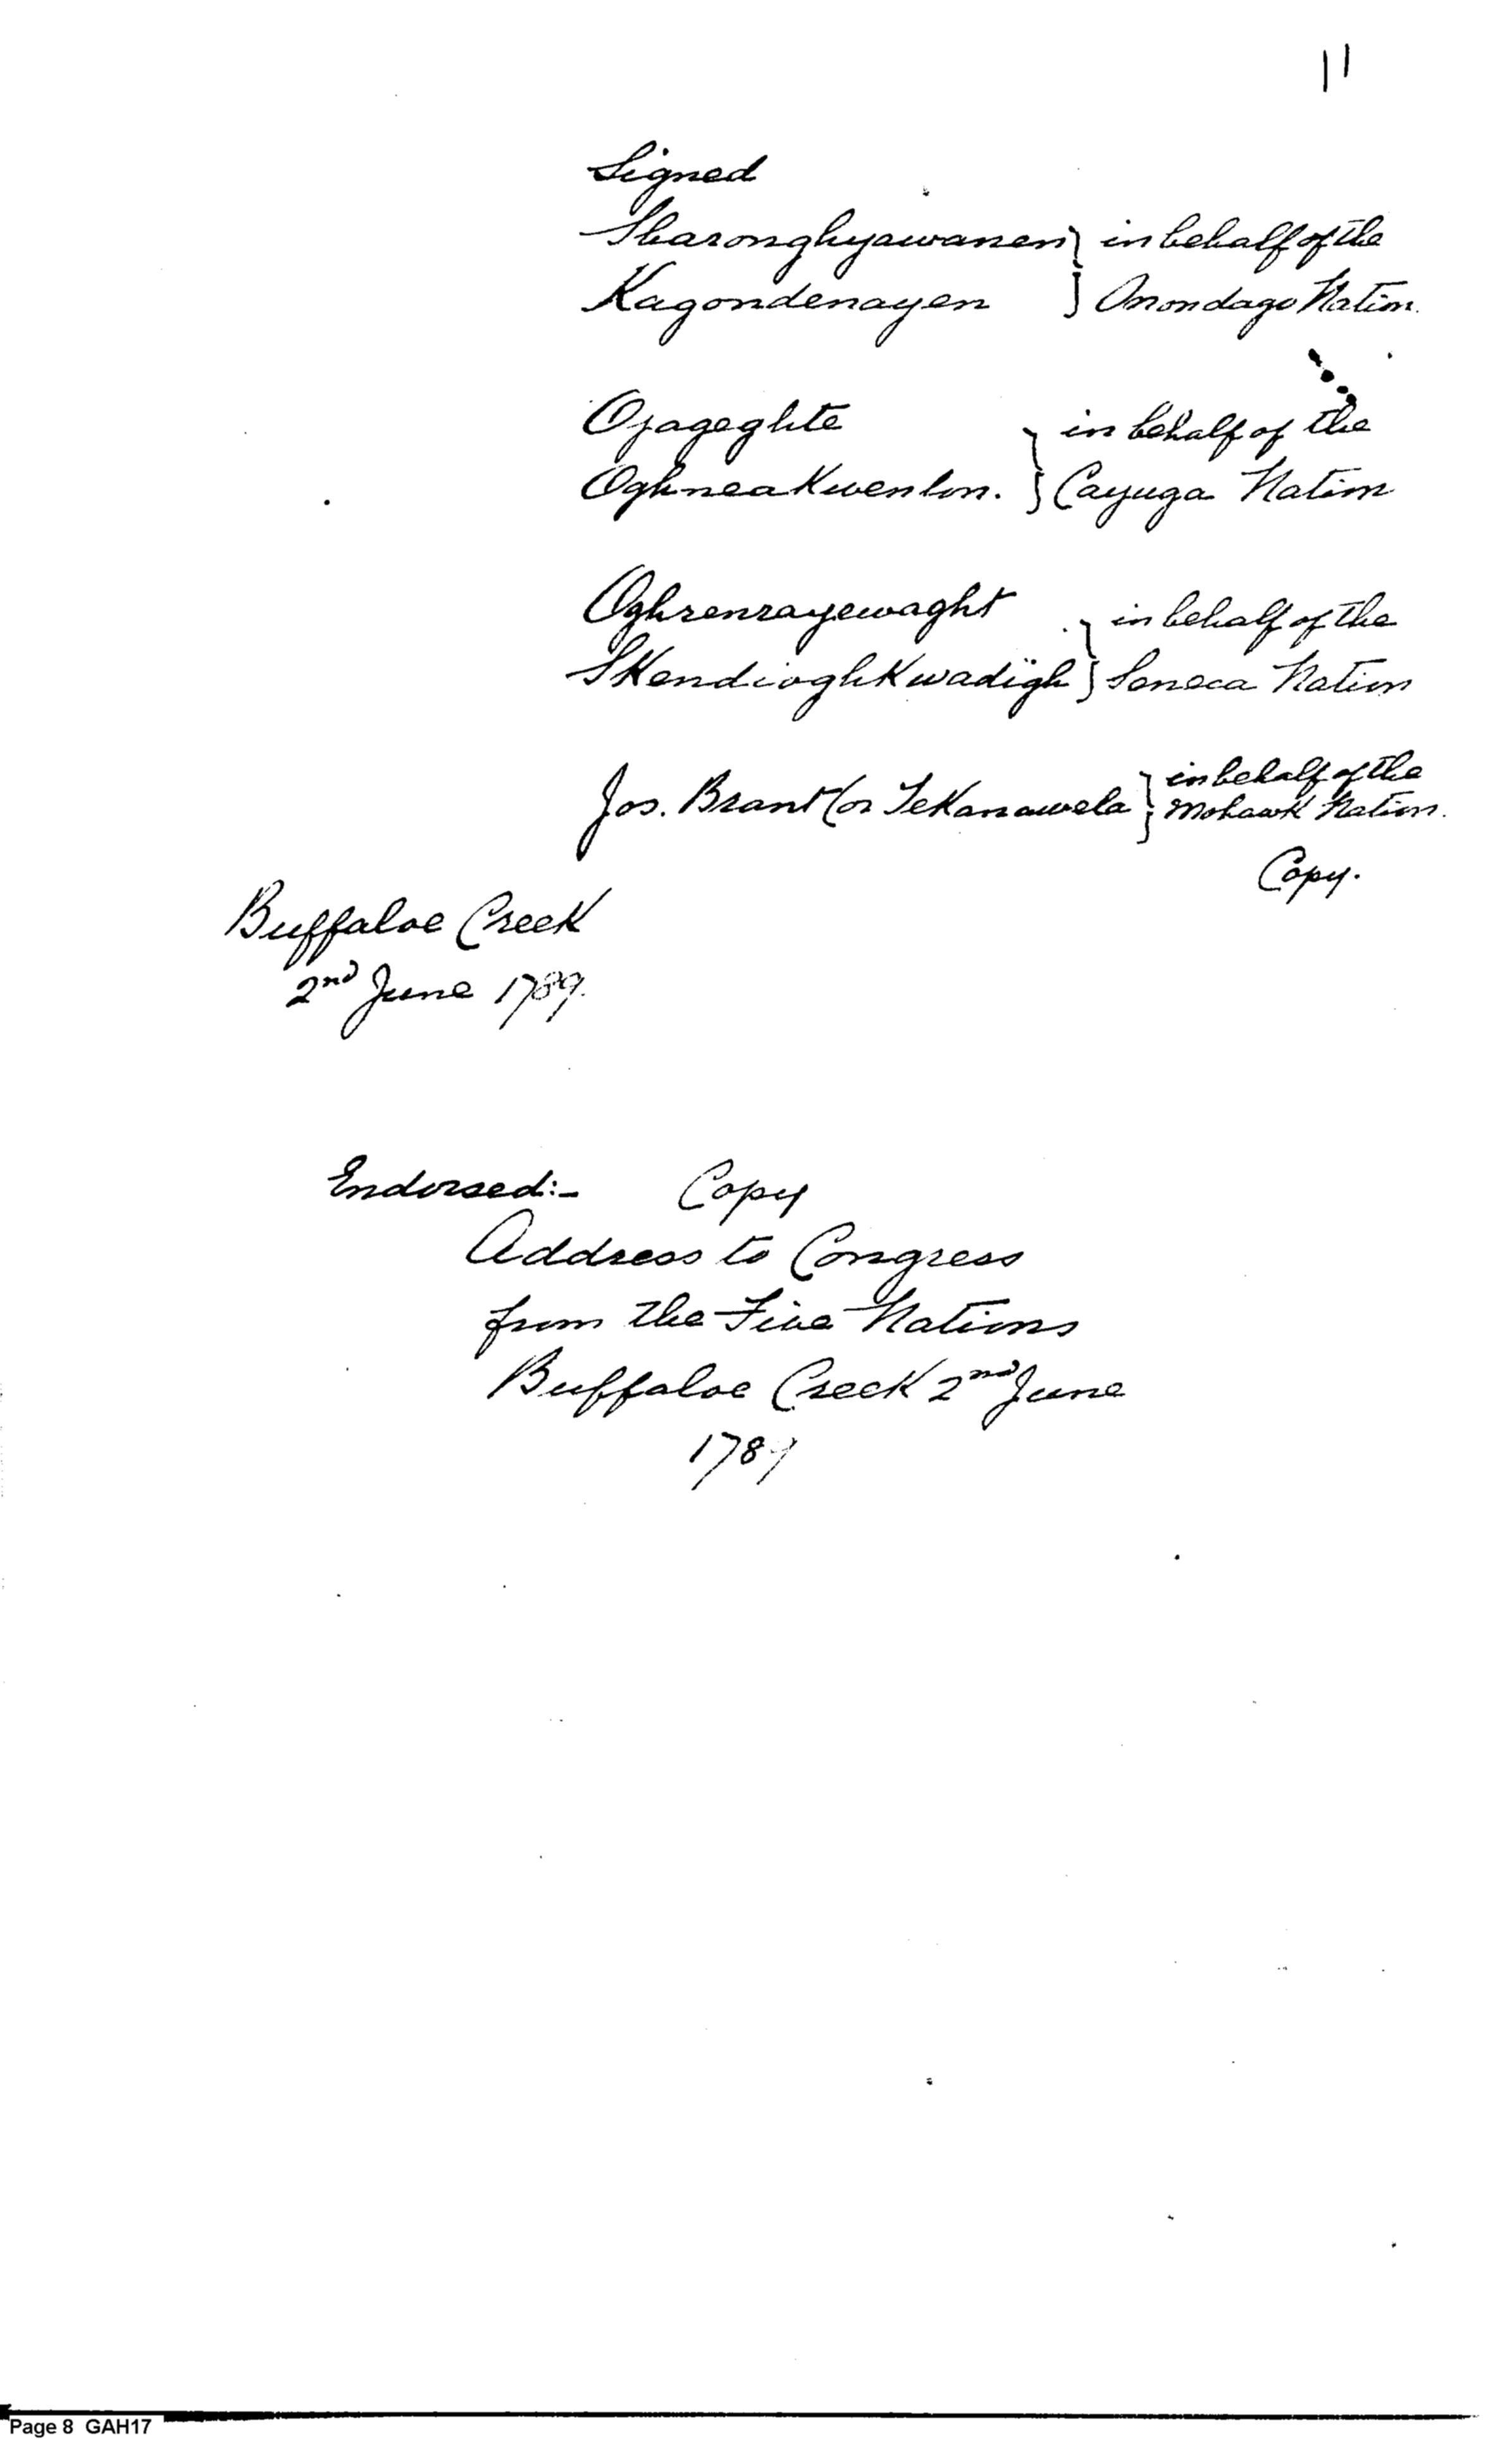 11
Signed
Sharonghyawanen } in behalf of the
Kagondenayen } Onondago Nation.
Ojageghte } in behalf of the
OghneaKwenlon. } Cayuga Nation
Oghrenrayewaght } in behalf of the
SKendioghKwadïgh } Seneca Nation
Jos. Brant (or TeKanawela } in behalf of the
Mohawk Nation.
Copy.
Buffaloe Creek
2nd June 1789.
Endorsed:- Copy
Address to Congress
from the Five Nations
Buffaloe Creek 2nd June
1789
Page 8 GAH17